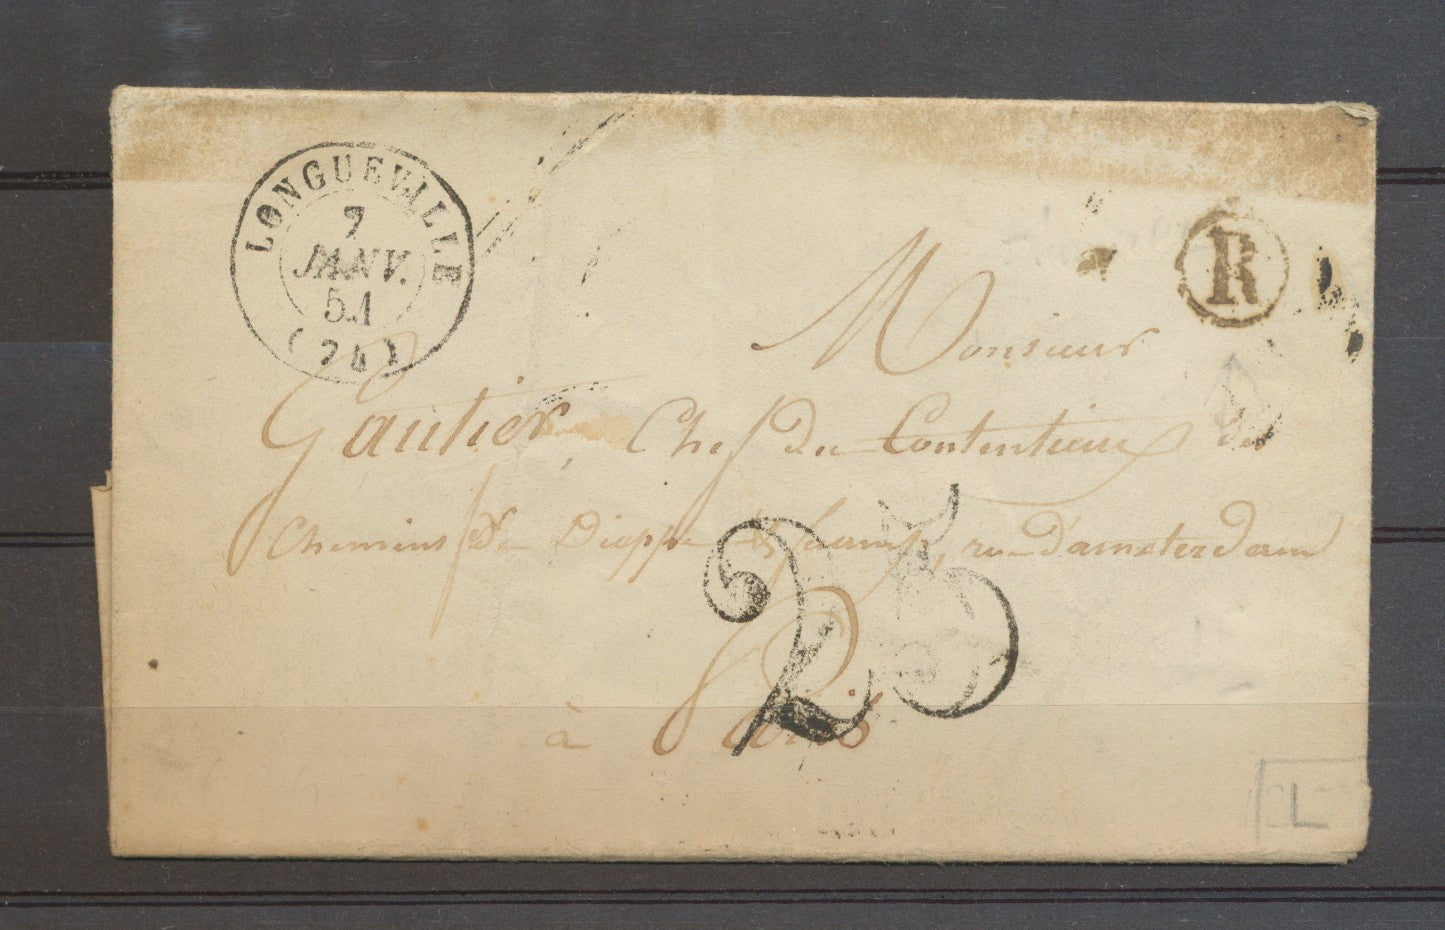 LONGUEVILLE
7
JANV.
51
(74)
R
Monsieur
Gautier, Chef du Contentieux des
Chemins de Dieppe & Fécamp, rue d'amsterdam
25
à Paris
L